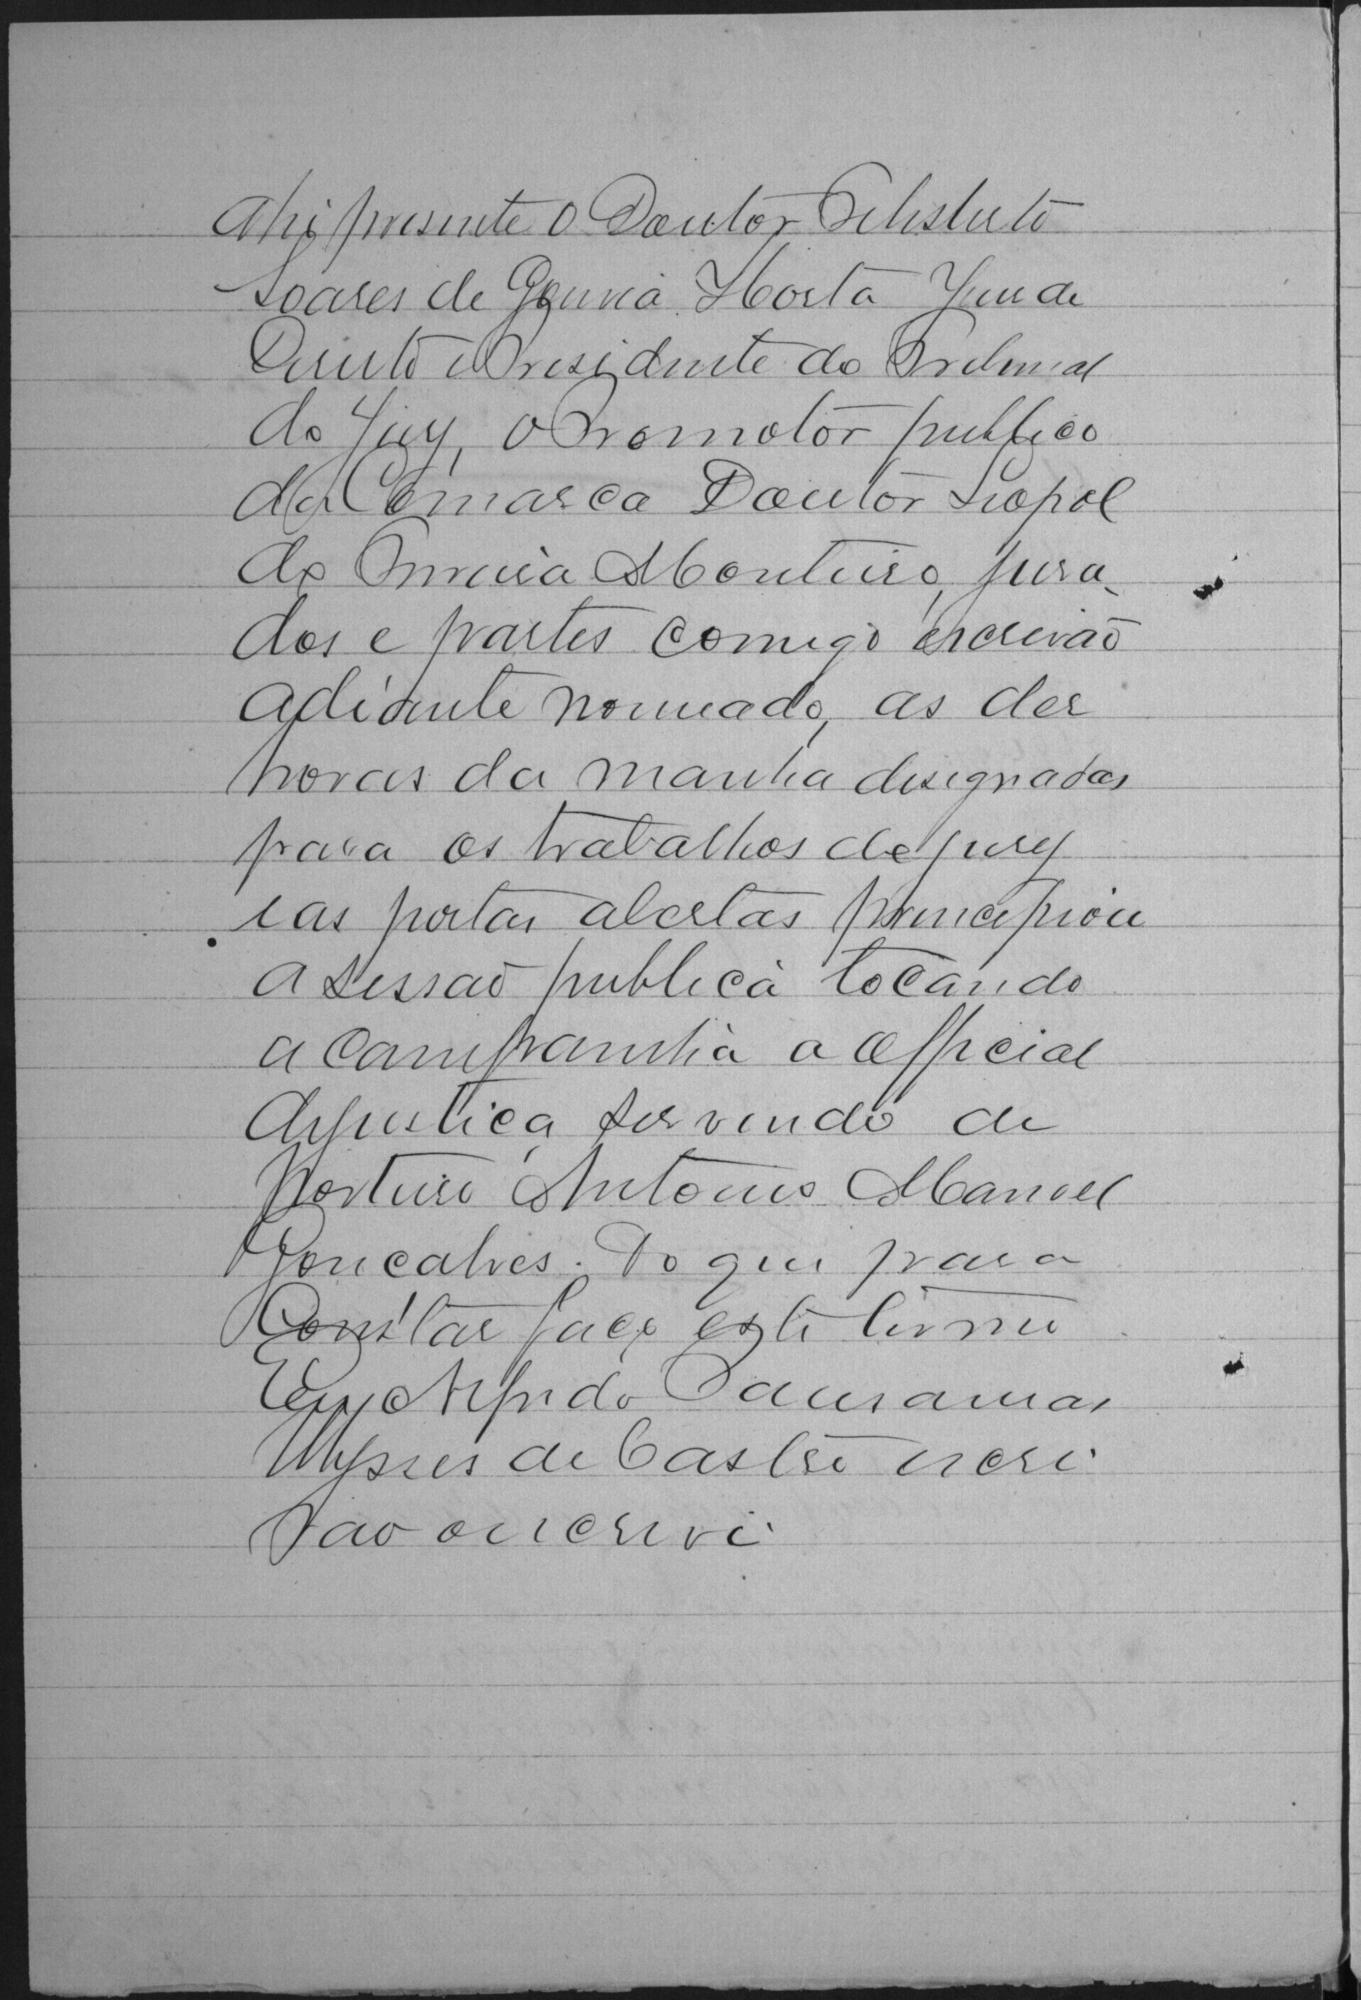 Ahi presente o Doutor Felisberto
Soares de Gouvea Horta Juiz de
Direito e Presidente do Tribunal
do Jury, o Promotor publico
da Comarca Doutor Leopol
do Correia Monteiro, jura
dos e partes comigo escrivão
adiante nomeado, as dez
horas da manha designadas
para os trabalhos do jury
e as portas abertas principiou
a sessão publica tocando
a campanhia o official
de justiça servindo de
porteiro Antonio Manoel
Gonçalves. Do que para
constar faço este termo
Eu, Alfredo
Ulysses de Castro escri
vão o escrevi